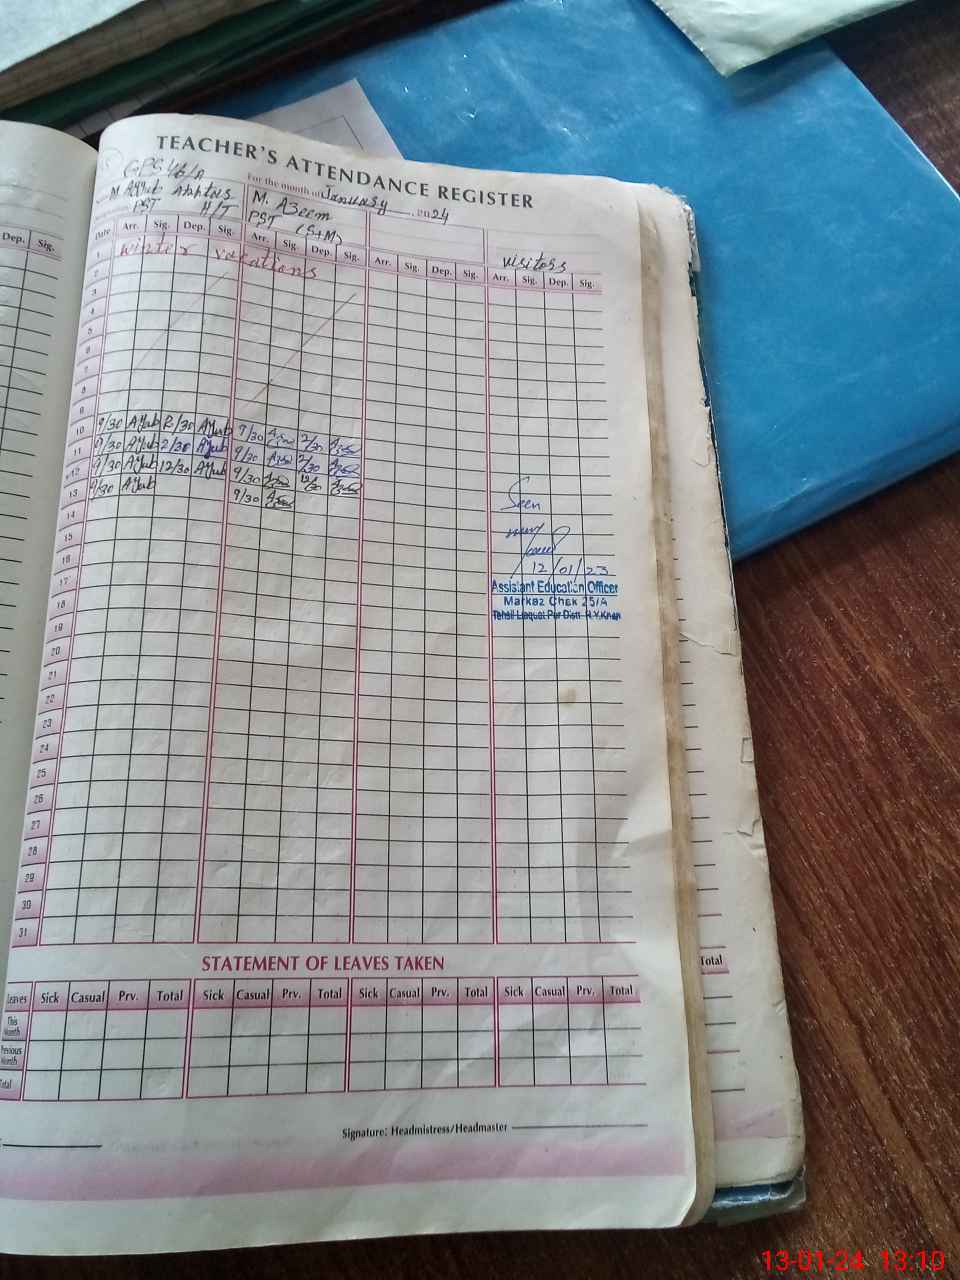 TEACHER'S ATTENDANCE REGISTER
GPS 46/A
For the month of January 2024
M. Ayub
PST H/T
M. Azeem
PST (S+M)
visitors
Dep. Sig.
Date Arr. Sig. Dep. Sig. Arr. Sig. Dep. Sig. Arr. Sig. Dep. Sig. Arr. Sig. Dep. Sig.
1 winter vacations
2
3
4
5
6
7
8
9
10 9/30 Ayub 2/30 Ayub 9/30 2/30
11 9/30 Ayub 2/30 Ayub 9/30 2/30
12 9/30 Ayub 12/30 Ayub 9/30 12/30
13 9/30 Ayub 9/30
14
Seen
15
16
12/01/23
17
Assistant Education Officer
18
Markaz Chak 25/A
19
Tehsil Liaquat Pur Distt R.Y.Khan
20
21
22
23
24
25
26
27
28
29
30
31
STATEMENT OF LEAVES TAKEN
Total
Leaves Sick Casual Prv. Total Sick Casual Prv. Total Sick Casual Prv. Total Sick Casual Prv. Total
This Month
Previous Month
Total
Signature: Headmistress/Headmaster
13-01-24 13:10